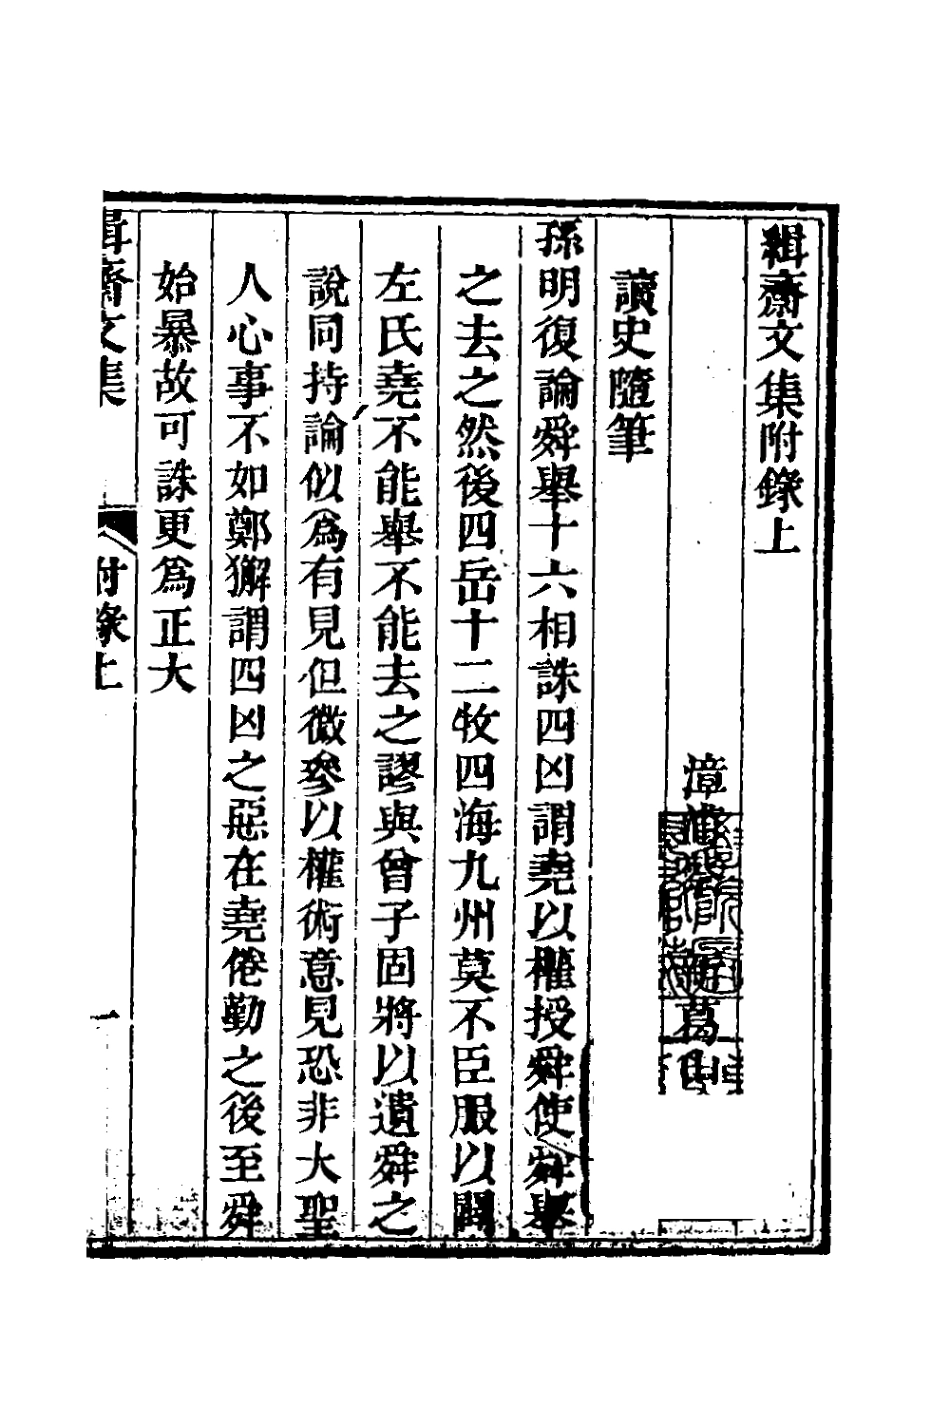 緝齋文集附錄上
漳浦蔡新葛山
讀史隨筆
孫明復論舜舉十六相誅四凶謂堯以權授舜使舜舉
之去之然後四岳十二牧四海九州莫不臣服以闢
左氏堯不能舉不能去之謬與曾子固將以遺舜之
說同持論似為有見但微參以權術意見恐非大聖
人心事不如鄭獬謂四凶之惡在堯倦勤之後至舜
始暴故可誅更為正大
緝齋文集
附錄上
一